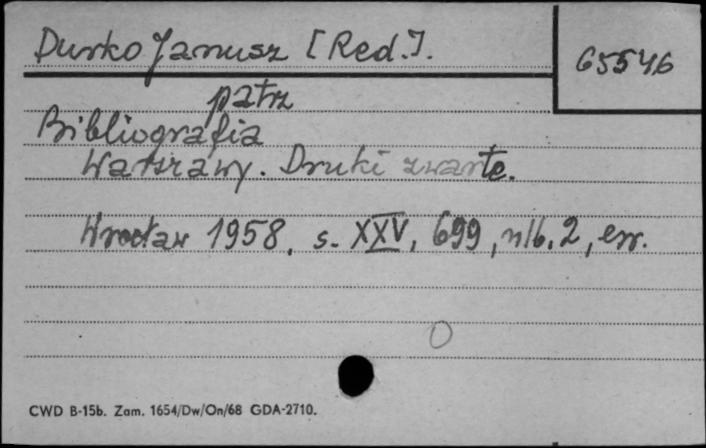 Durko Janusz [Red.].
65546
patrz
Bibliografia
Warszawy. Druki zwarte.
Wrocław 1958, s. XXV, 699, nlb. 2, err.
CWD B-15b. Zam. 1654/Dw/On/68 GDA-2710.